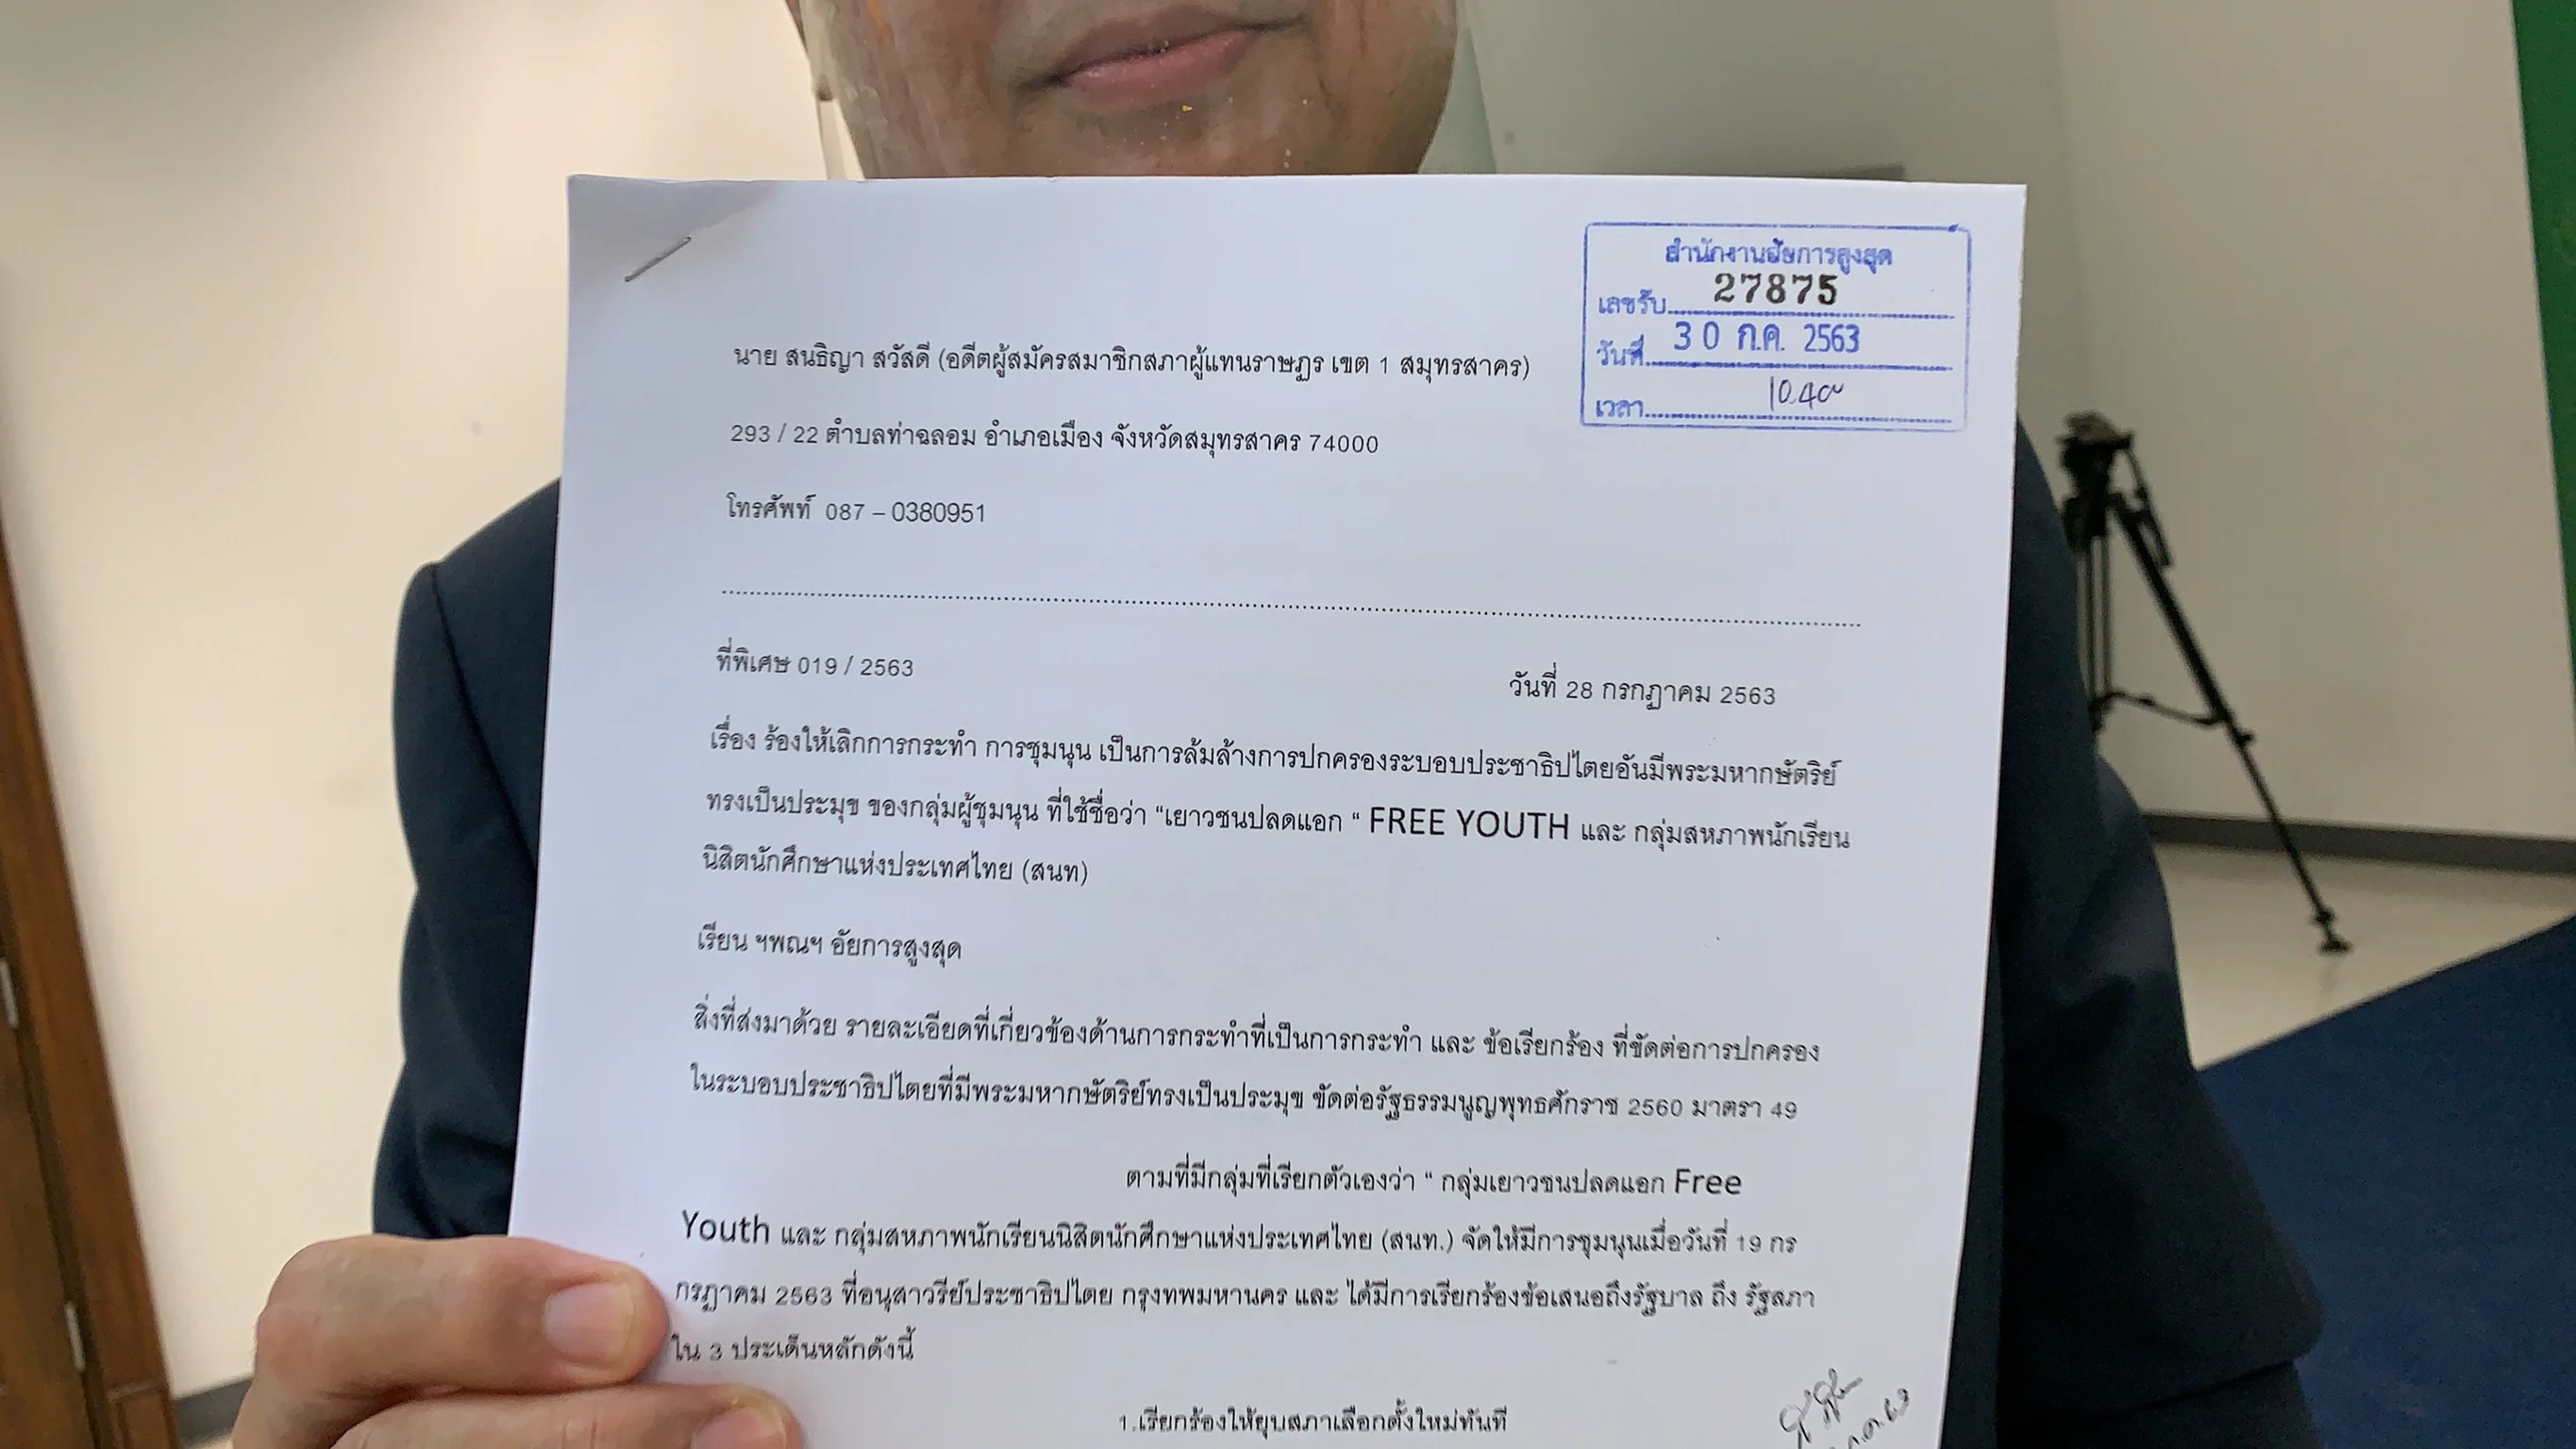 สำนักงานอัยการสูงสุด
เลขรับ 27875
วันที่ 30 ก.ค. 2563
เวลา
นาย สนธิญา สวัสดี (อดีตผู้สมัครสมาชิกสภาผู้แทนราษฎร เขต 1 สมุทรสาคร)
293 / 22 ตำบลท่าฉลอม อำเภอเมือง จังหวัดสมุทรสาคร 74000
โทรศัพท์ 087 – 0380951
ที่พิเศษ 019 / 2563
วันที่ 28 กรกฎาคม 2563
เรื่อง ร้องให้เลิกการกระทำ การชุมนุน เป็นการล้มล้างการปกครองระบอบประชาธิปไตยอันมีพระมหากษัตริย์
ทรงเป็นประมุข ของกลุ่มผู้ชุมนุน ที่ใช้ชื่อว่า “เยาวชนปลดแอก “ FREE YOUTH และ กลุ่มสหภาพนักเรียน
นิสิตนักศึกษาแห่งประเทศไทย (สนท)
เรียน ฯพณฯ อัยการสูงสุด
สิ่งที่ส่งมาด้วย รายละเอียดที่เกี่ยวข้องด้านการกระทำที่เป็นการกระทำ และ ข้อเรียกร้อง ที่ขัดต่อการปกครอง
ในระบอบประชาธิปไตยที่มีพระมหากษัตริย์ทรงเป็นประมุข ขัดต่อรัฐธรรมนูญพุทธศักราช 2560 มาตรา 49
ตามที่มีกลุ่มที่เรียกตัวเองว่า “ กลุ่มเยาวชนปลดแอก Free
Youth และ กลุ่มสหภาพนักเรียนนิสิตนักศึกษาแห่งประเทศไทย (สนท.) จัดให้มีการชุมนุนเมื่อวันที่ 19 กร
กรฎาคม 2563 ที่อนุสาวรีย์ประชาธิปไตย กรุงทพมหานคร และ ได้มีการเรียกร้องข้อเสนอถึงรัฐบาล ถึง รัฐสภา
ใน 3 ประเด็นหลักดังนี้
1.เรียกร้องให้ยุบสภาเลือกตั้งใหม่ทันที